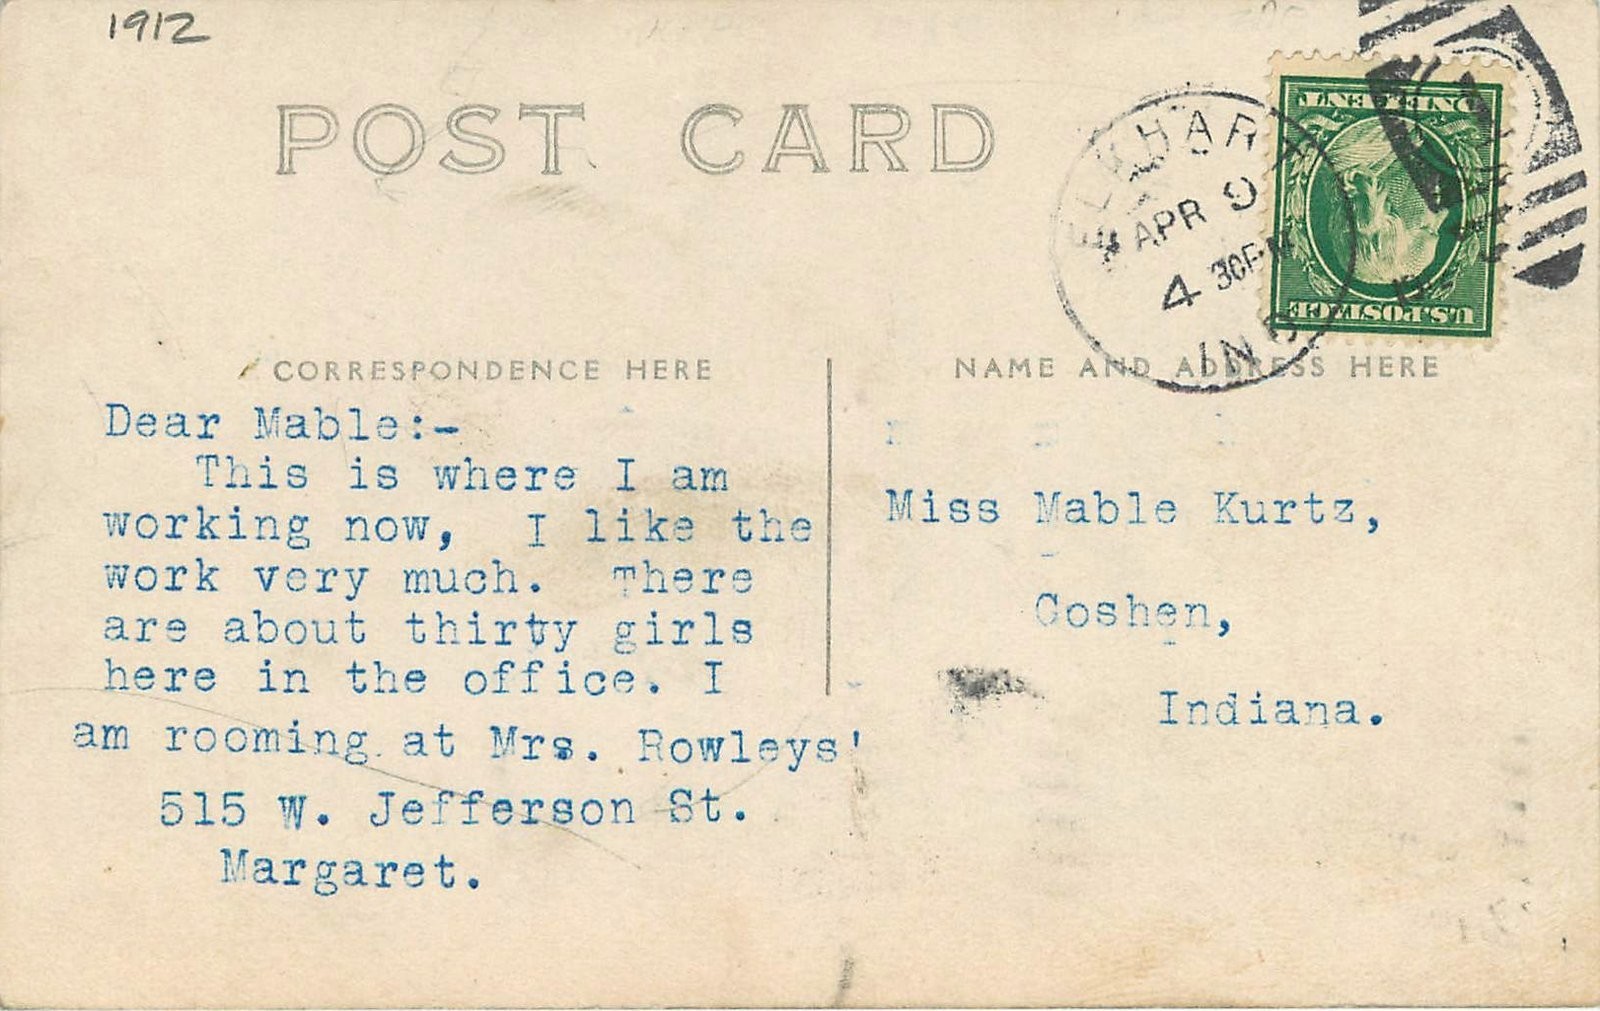 1912
POST CARD
ELKHART
APR 9
4 30PM
IND
ONE CENT
U.S. POSTAGE
CORRESPONDENCE HERE
NAME AND ADDRESS HERE
Dear Mable:-
This is where I am
working now, I like the
work very much. There
are about thirty girls
here in the office. I
am rooming at Mrs. Rowleys'
515 W. Jefferson St.
Margaret.
Miss Mable Kurtz,
Goshen,
Indiana.